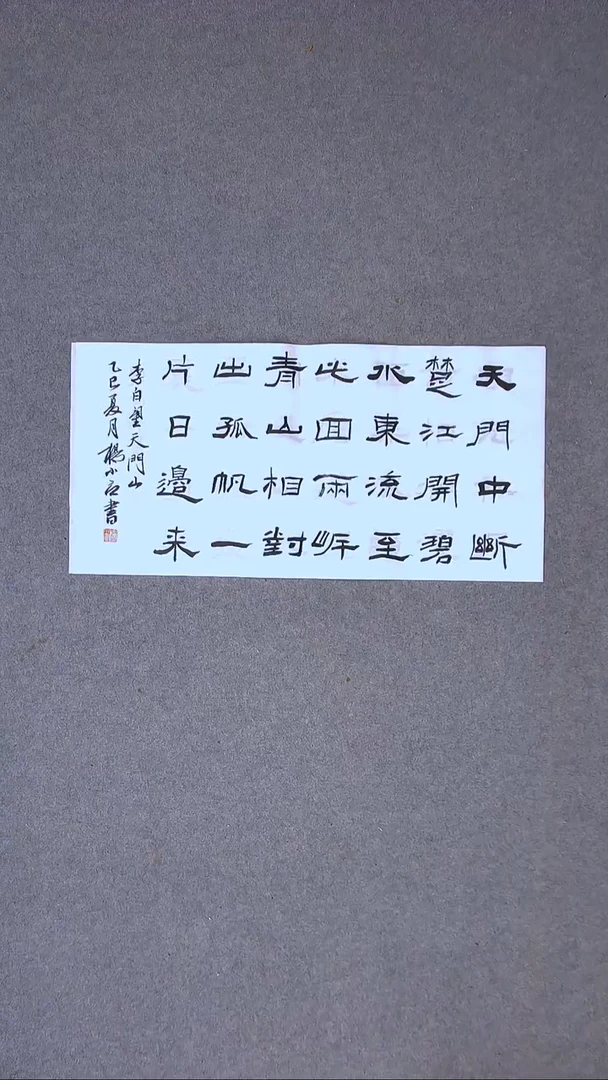 天門中斷
楚江開碧
水東流至
此回兩岸
青山相對
出孤帆一
片日邊来
李白望天門山
乙巳夏月楊小
書